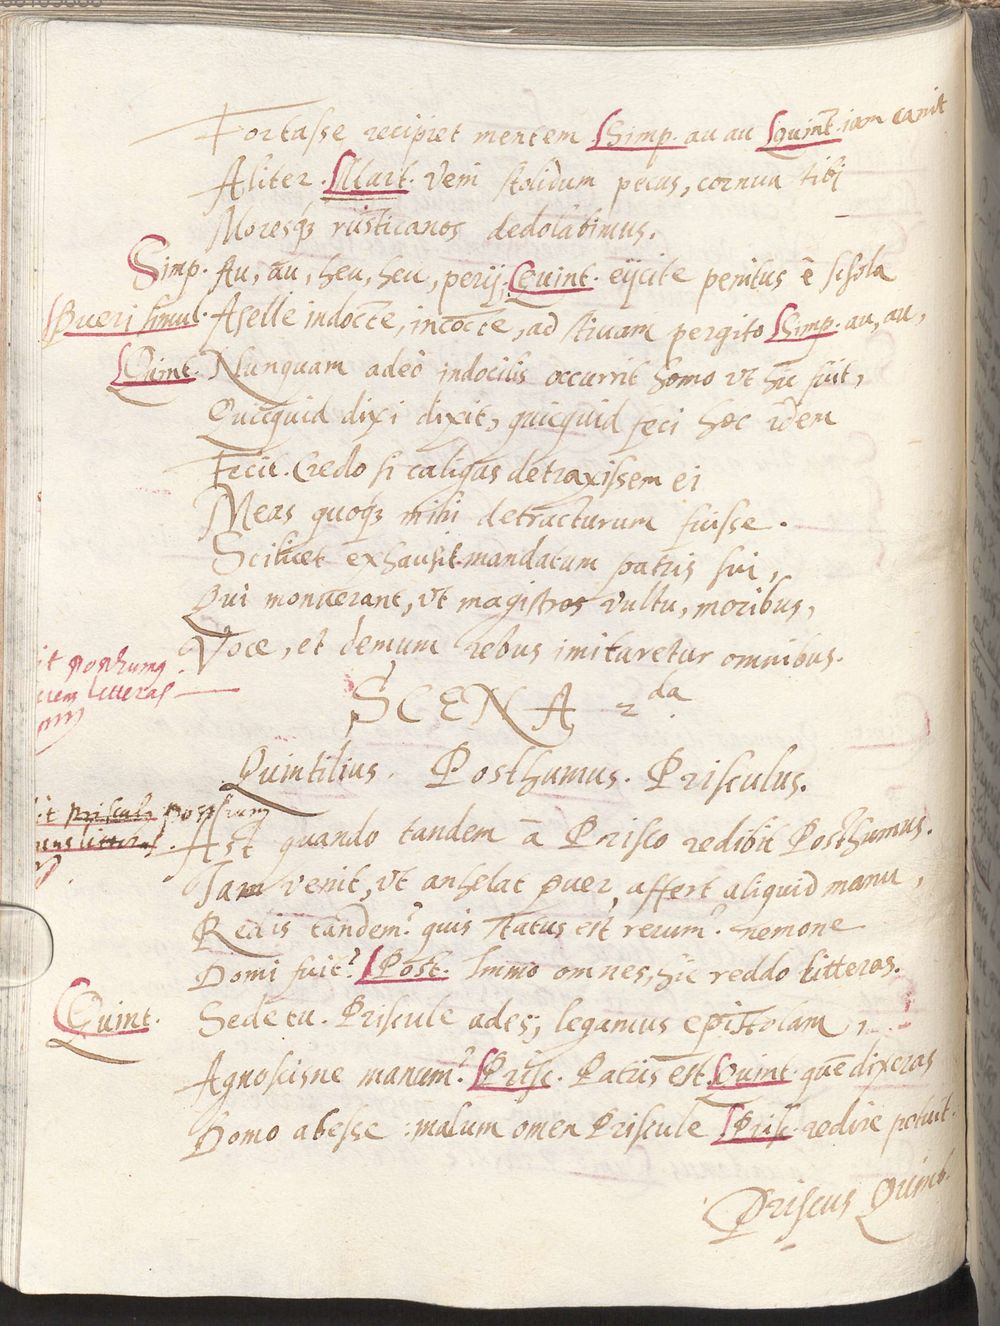 Fortasse recipiet mentem Simp. au au Quint. iam canit
Aliter. Mart. veni stolidum pecus, cornua tibj
Moresq; rusticanos dedolabimus.
Simp. Au, au, heu, heu, perij, Quint. eijcite penitus è schola
Pueri simul. Aselle indocte, incocte, ad stiuam pergito Simp. au, au,
Quint. Nunquam adeò indocilis occurrit homo vt hic fuit,
Quicquid dixi dixit, quicquid feci hoc idem
Fecit. Credo si caligas detraxissem ei
Meas quoq; mihi detracturum fuisse.
Scilicet exhausit mandatum patris sui,
Qui monuerant, vt magistros vultu, moribus,
Voce, et demum rebus imitaretur omnibus.
it posthumq
litteras
SCENA 2da
Quintilius. Posthumus. Prisculus.
it priscul9 posthum
litteras.
Ast quando tandem à Prisco redibit Posthumus.
Iam venit, vt anhelat puer, affert aliquid manu,
Redis tandem? quis status est rerum? nemone
Domi fuit? Post. Immo omnes, hic reddo litteras.
Quint. Sede tu. Priscule ades, legamus epistolam,
Agnoscisne manum? Prisc. Patris est. Quint. quē dixeras
Domo abesse: malum omen Priscule Prisc. redire potuit.
Priscus Quint.